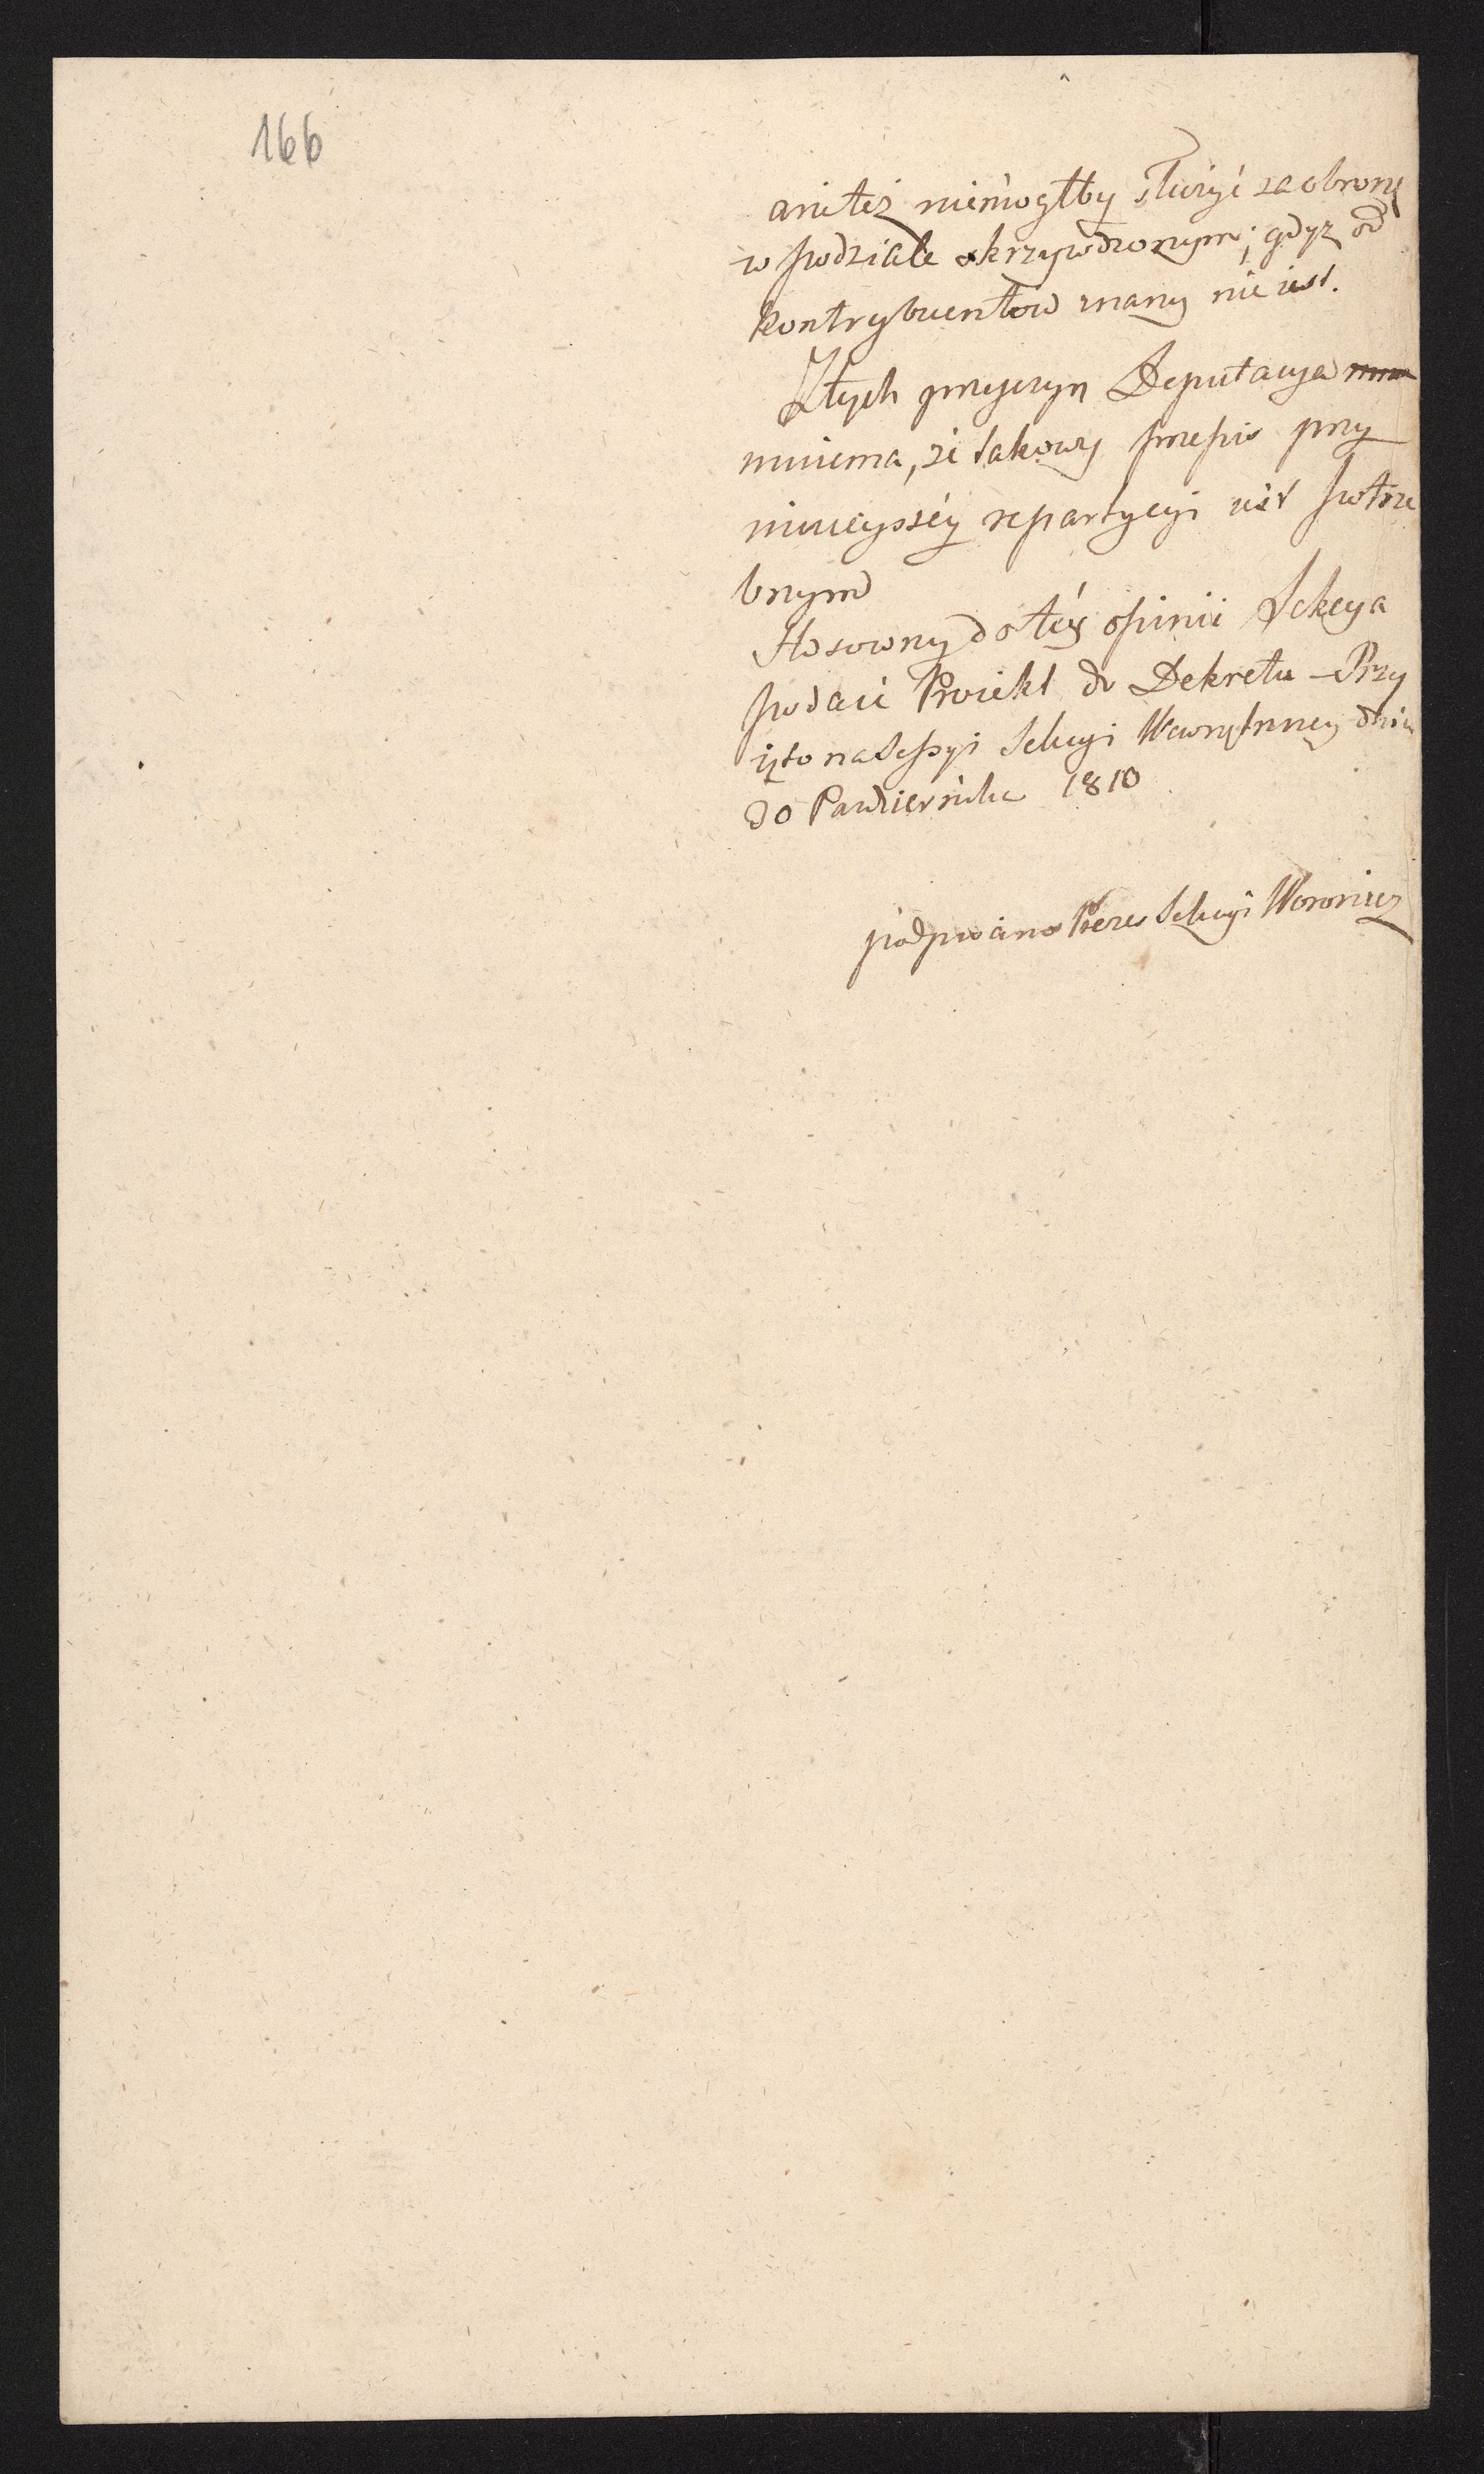 166
anitéż niemogłby służyć za obronę
w podziale okrzywdzonym; gdyz od
kontrybuentow znany nie iest.
Z tych przyczyn Deputacya
mniema, że takowy przepis przy
ninieyszéy repartycyi iest potrze
bnym
Stosowny do téy opinii Sekcya
podaie Proiekt do Dekretu – Przy
ięto na Sessyi Sekcyi Wewnętrzney dnia
30 Pazdziernika 1810
podpisano Prezes Sekcyi Woronicz